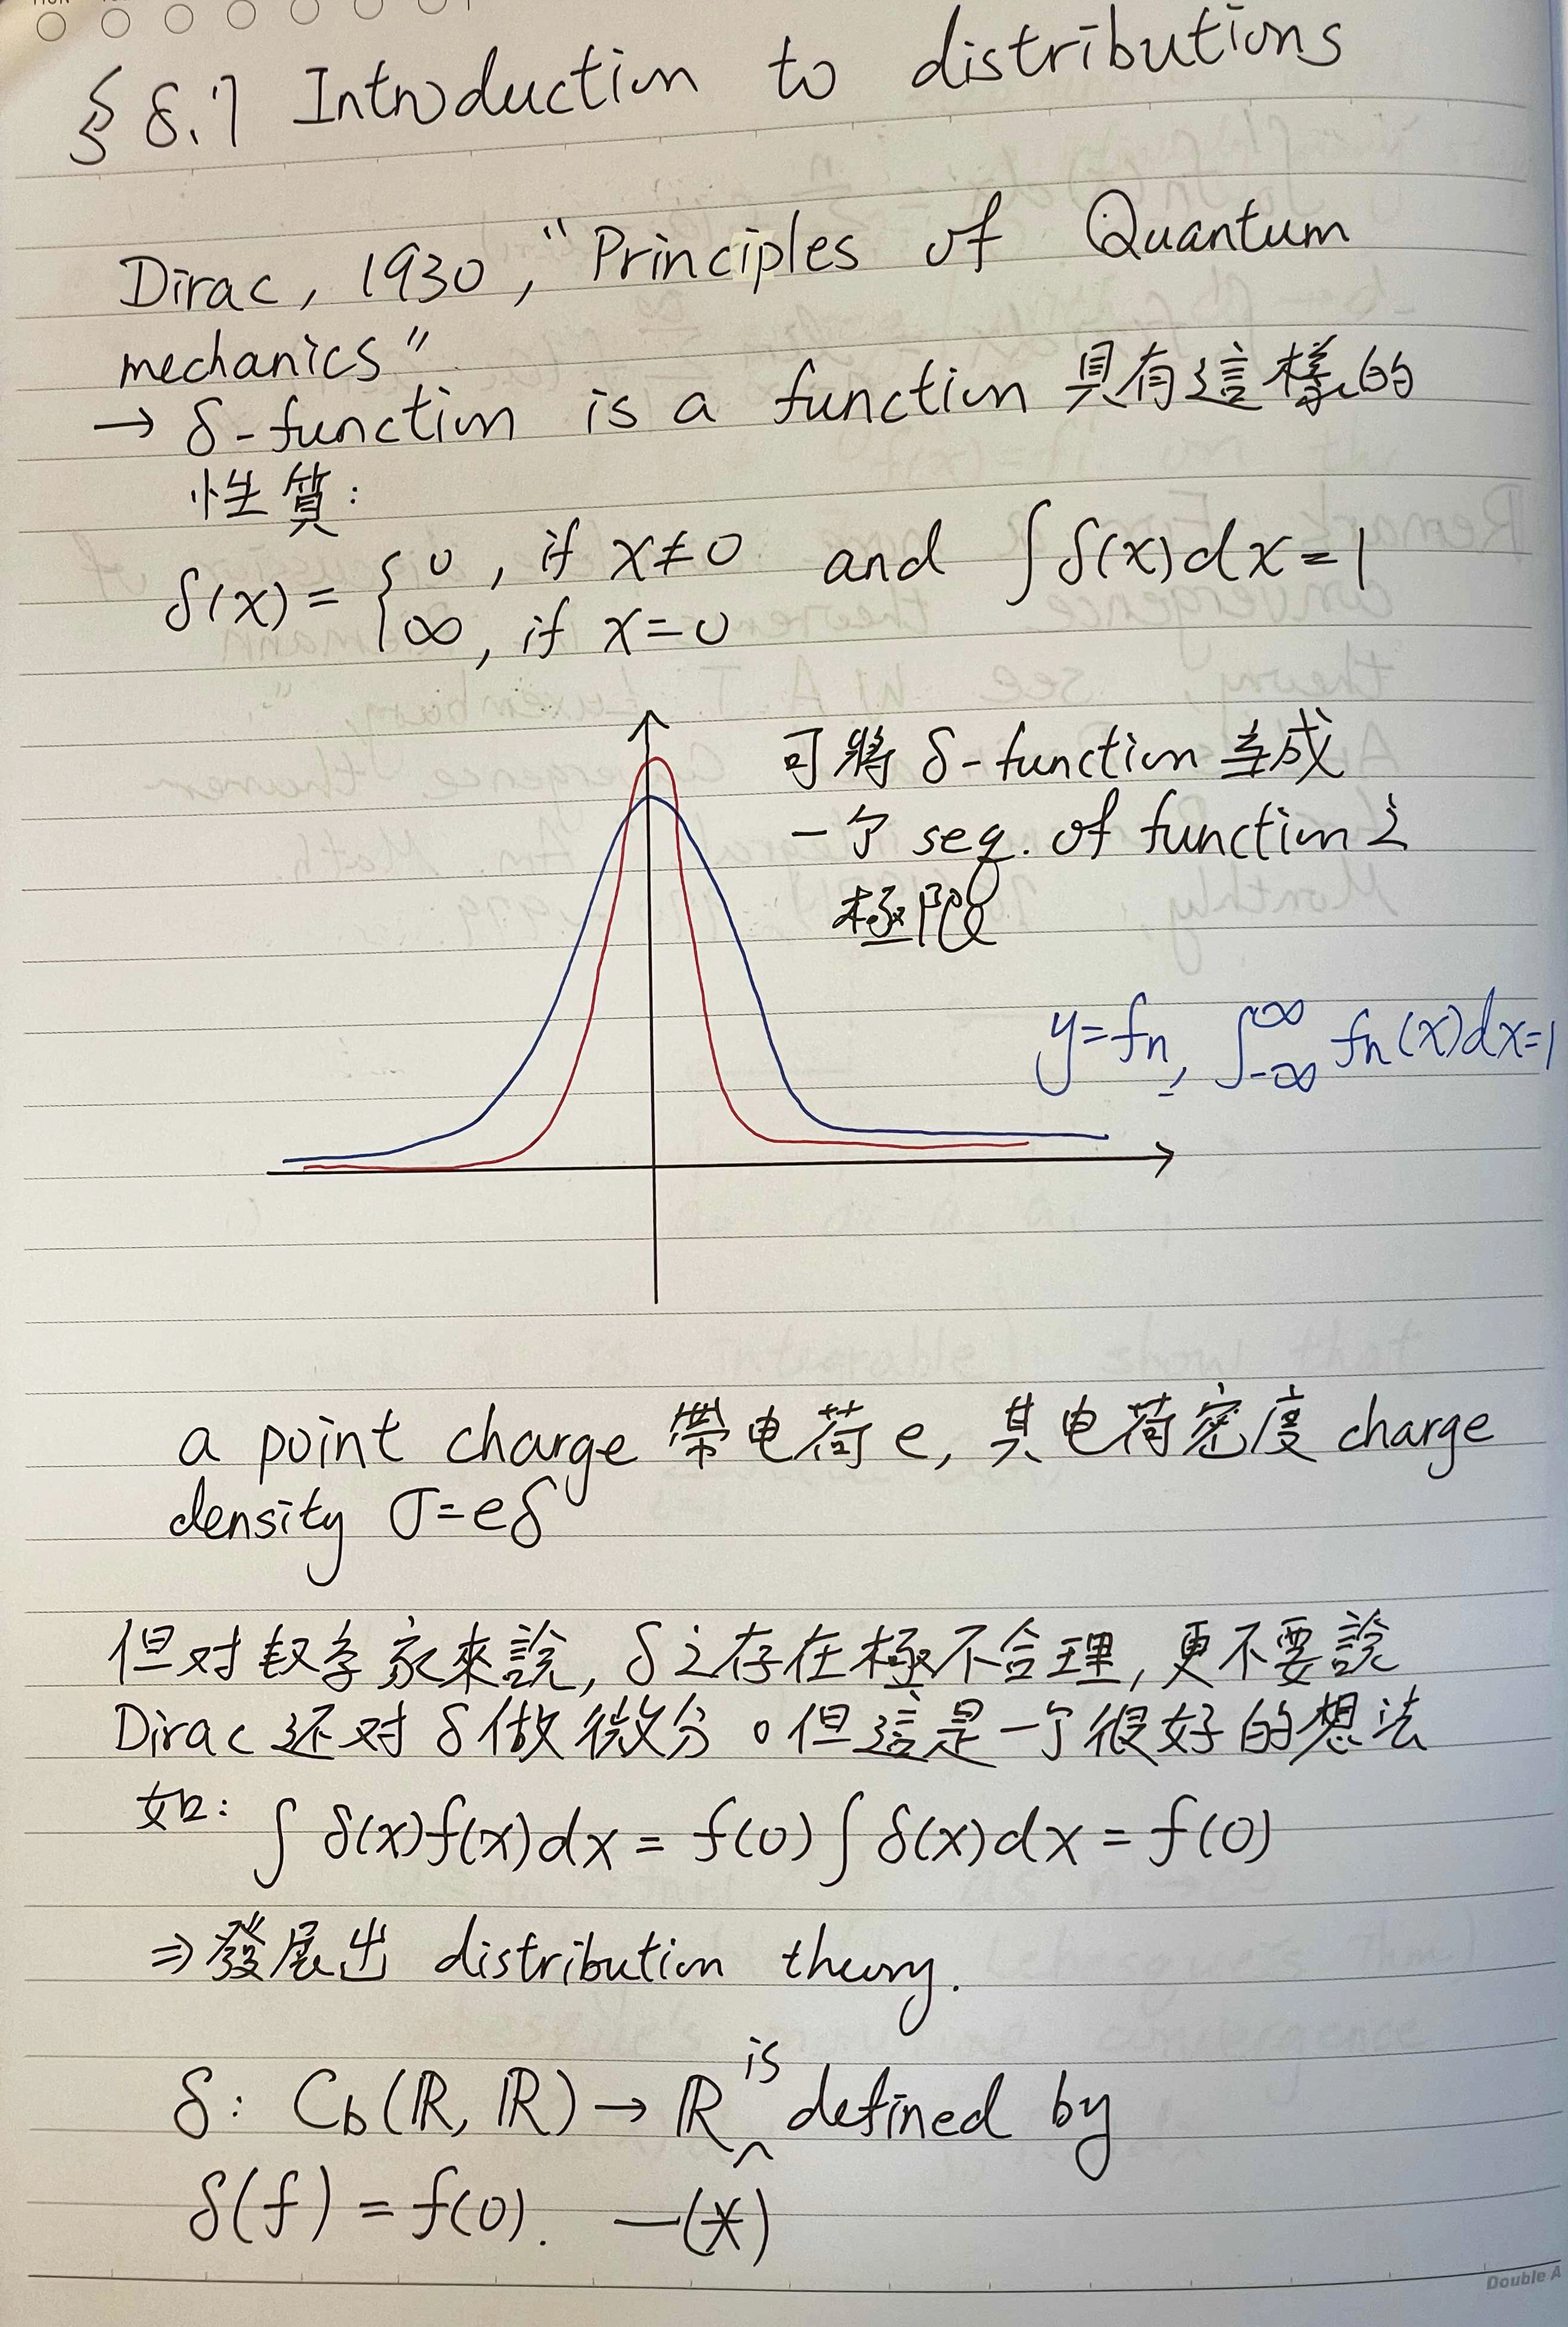 § 8.7 Introduction to distributions
Dirac, 1930, "Principles of Quantum
mechanics"
→ δ-function is a function 具有這樣的
性質:
δ(x) = { 0, if x≠0 and ∫ δ(x)dx=1
∞, if x=0
可將 δ-function 当成
一个 seq. of function 之
極限
y=fn, ∫_{-∞}^{∞} fn(x)dx=1
a point charge 帶电荷 e, 其电荷密度 charge
density σ=eδ
但对数学家來說, δ之存在極不合理, 更不要說
Dirac 还对 δ 做微分。但這是一个很好的想法
如: ∫ δ(x)f(x)dx = f(0)∫ δ(x)dx = f(0)
⇒ 發展出 distribution theory.
δ: Cb(ℝ, ℝ) → ℝ is defined by
δ(f) = f(0). —(*)
Double A